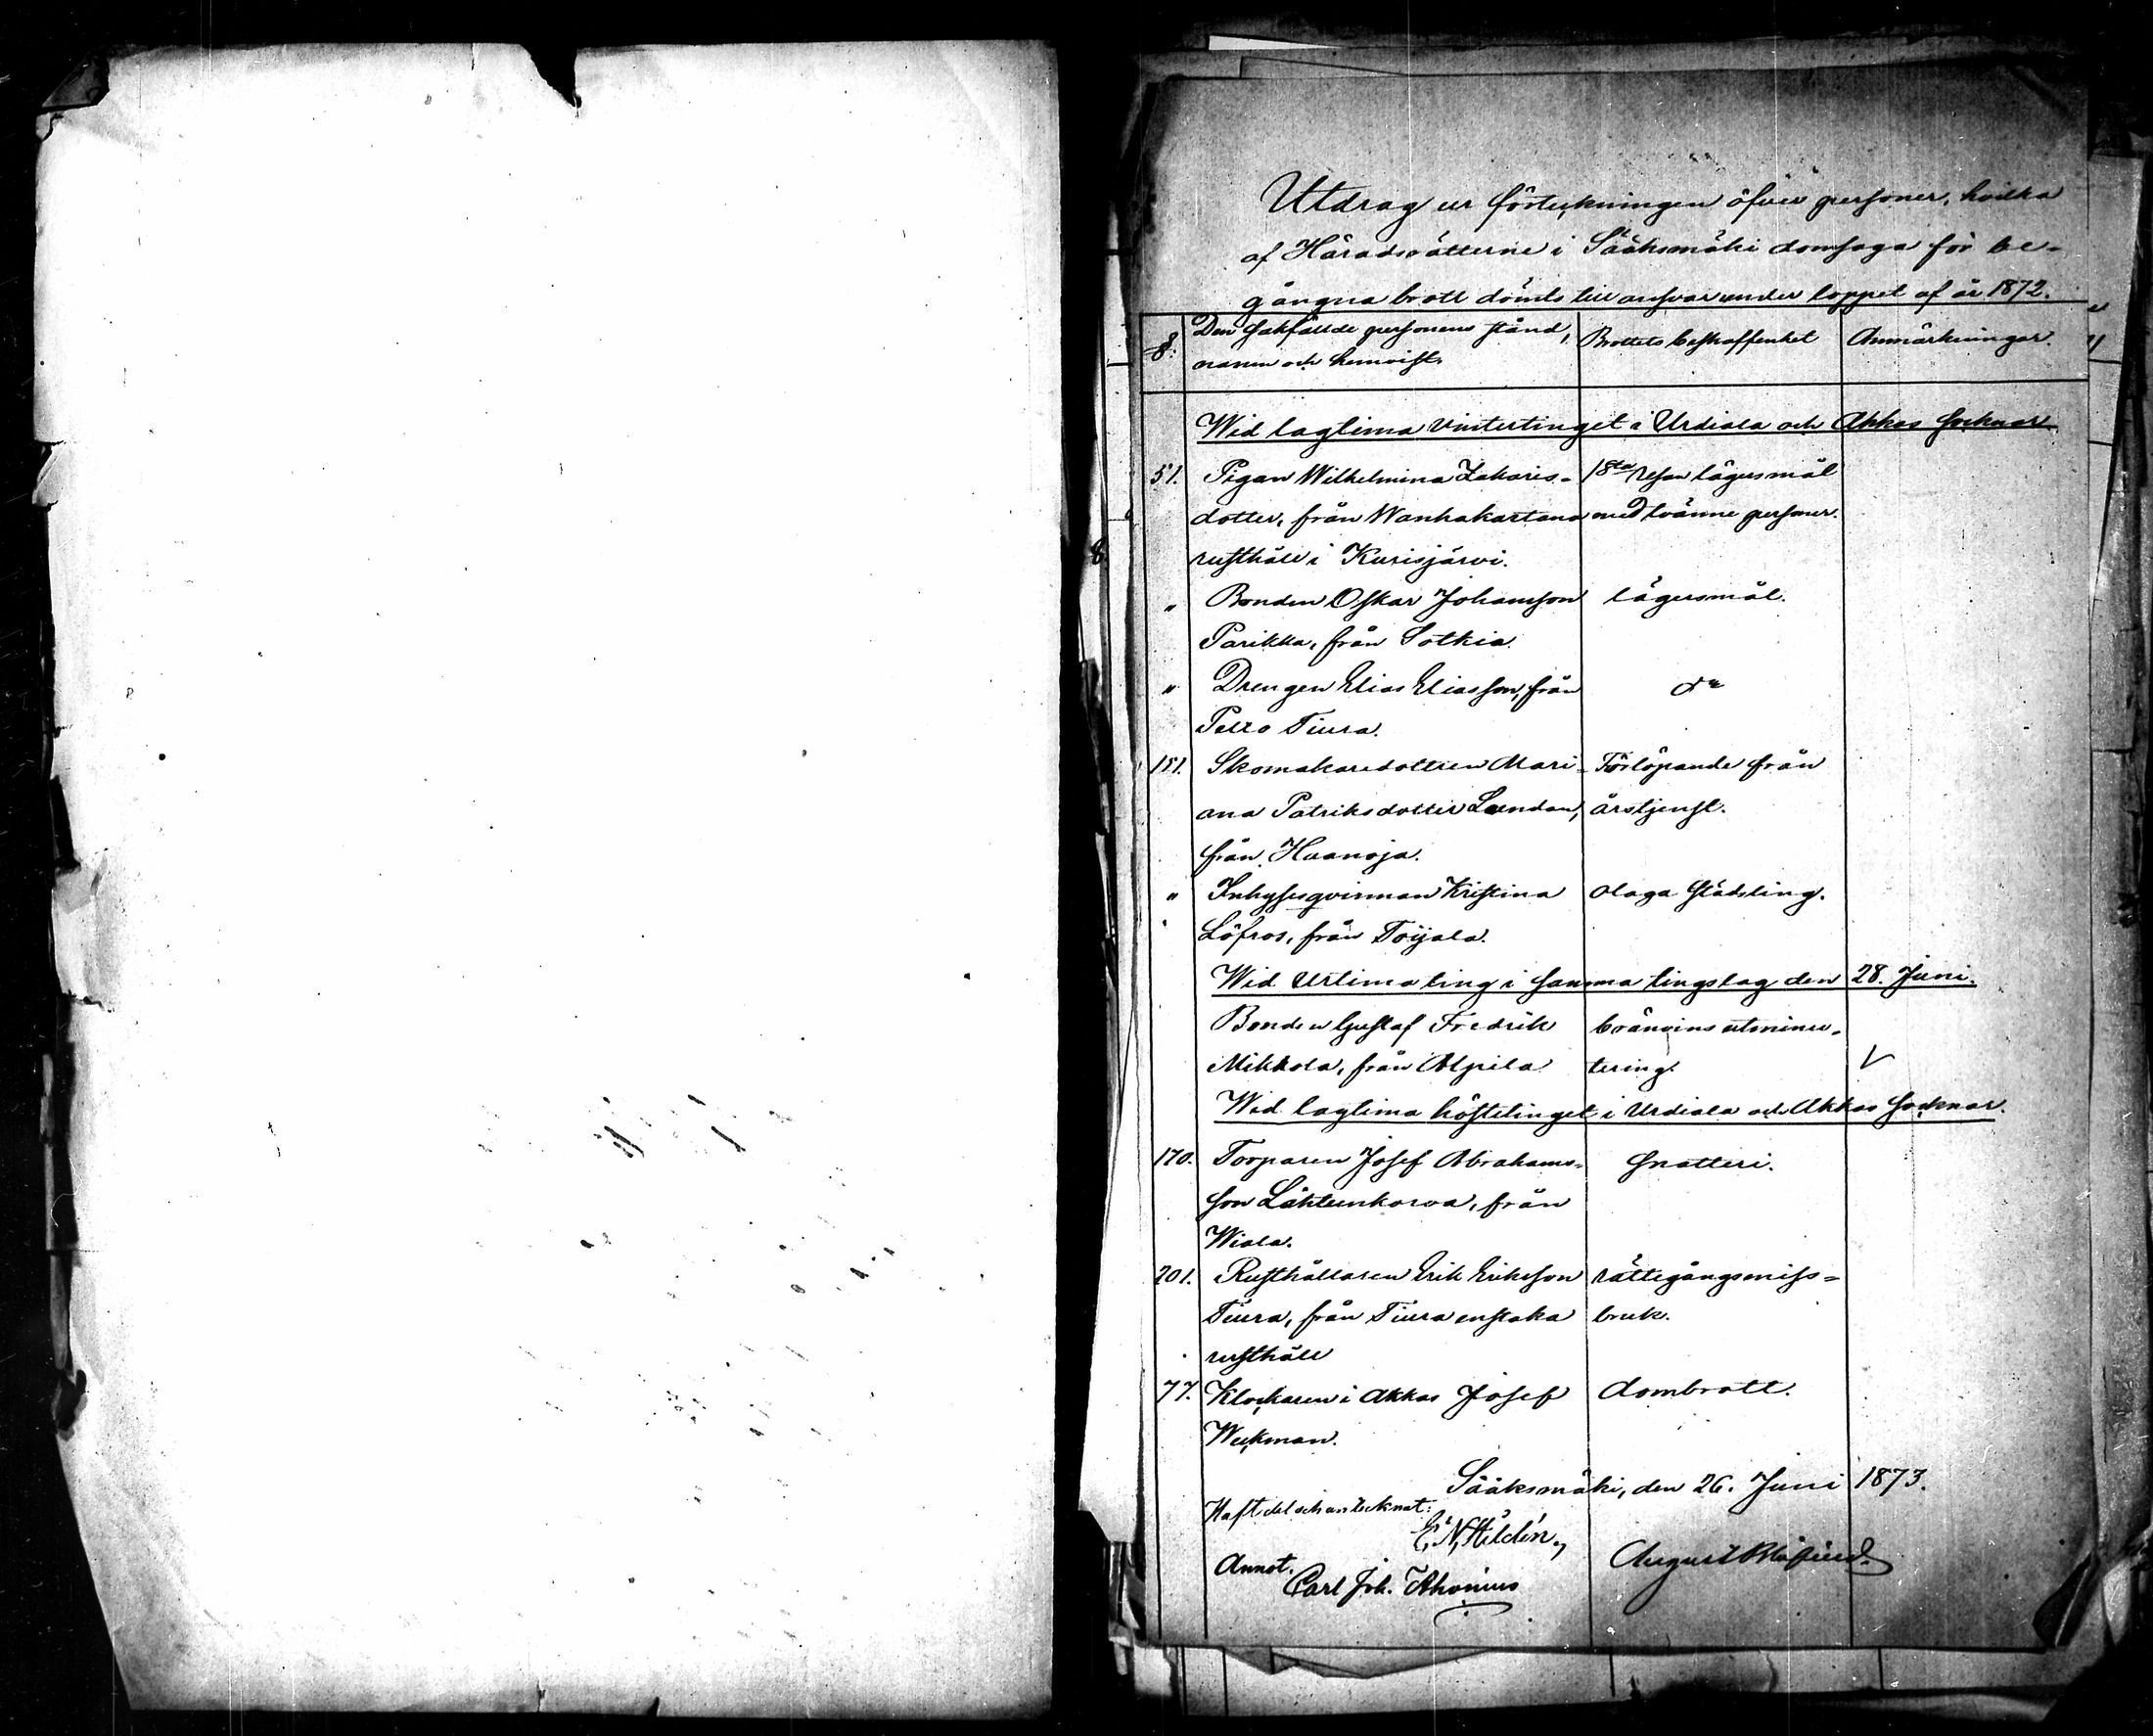 Utdrag ur förteckningen öfver personer, hvilka
af Häradsrätterne i Sääksmäki domsaga för be-
gångna brott dömts till ansvar under loppet af år 1872.
§. Den sakfällde personens stånd, Brottets beskaffenhet Anmärkningar.
namn och hemvist.
Wid lagtima vintertinget i Urdiala och Akkas socknar
51. Pigan Wilhelmina Zakaris- 1sta resan lägersmål
dotter, från Wanhakartano med tvänne personer.
rusthåll i Kurisjärvi.
" Bonden Oskar Johansson lägersmål.
Parikka, från Sotkia.
" Drengen Elias Eliasson, från do
Petro Tiura.
151. Skomakaredottren Mari- Förlöpande från
ana Patriksdotter Lundan, årstjenst.
från Huanoja.
" Inhysesqvinnan Kristina olaga städsling.
Löfros, från Toijala.
Wid Urtima ting i samma tingslag den 28. Juni.
Bonden Gustaf Fredrik bränvins utminu-
Mikkola, från Alpila tering.
Wid lagtima hösttinget i Urdiala och Akkas socknar.
170. Torparen Josef Abrahams- snatteri.
son Lähteenkorva, från
Wiala.
201. Rusthållaren Erik Eriksson rättegångsmiss-
Tiura, från Tiura enstaka bruk.
rusthåll
77. Klockaren i Akkas Josef dombrott.
Weckman.
Sääksmäki, den 26. Juni 1873.
Haft del och antecknat:
E. N. Hildén.
Annot.
Carl Joh. Ahonius
August
8